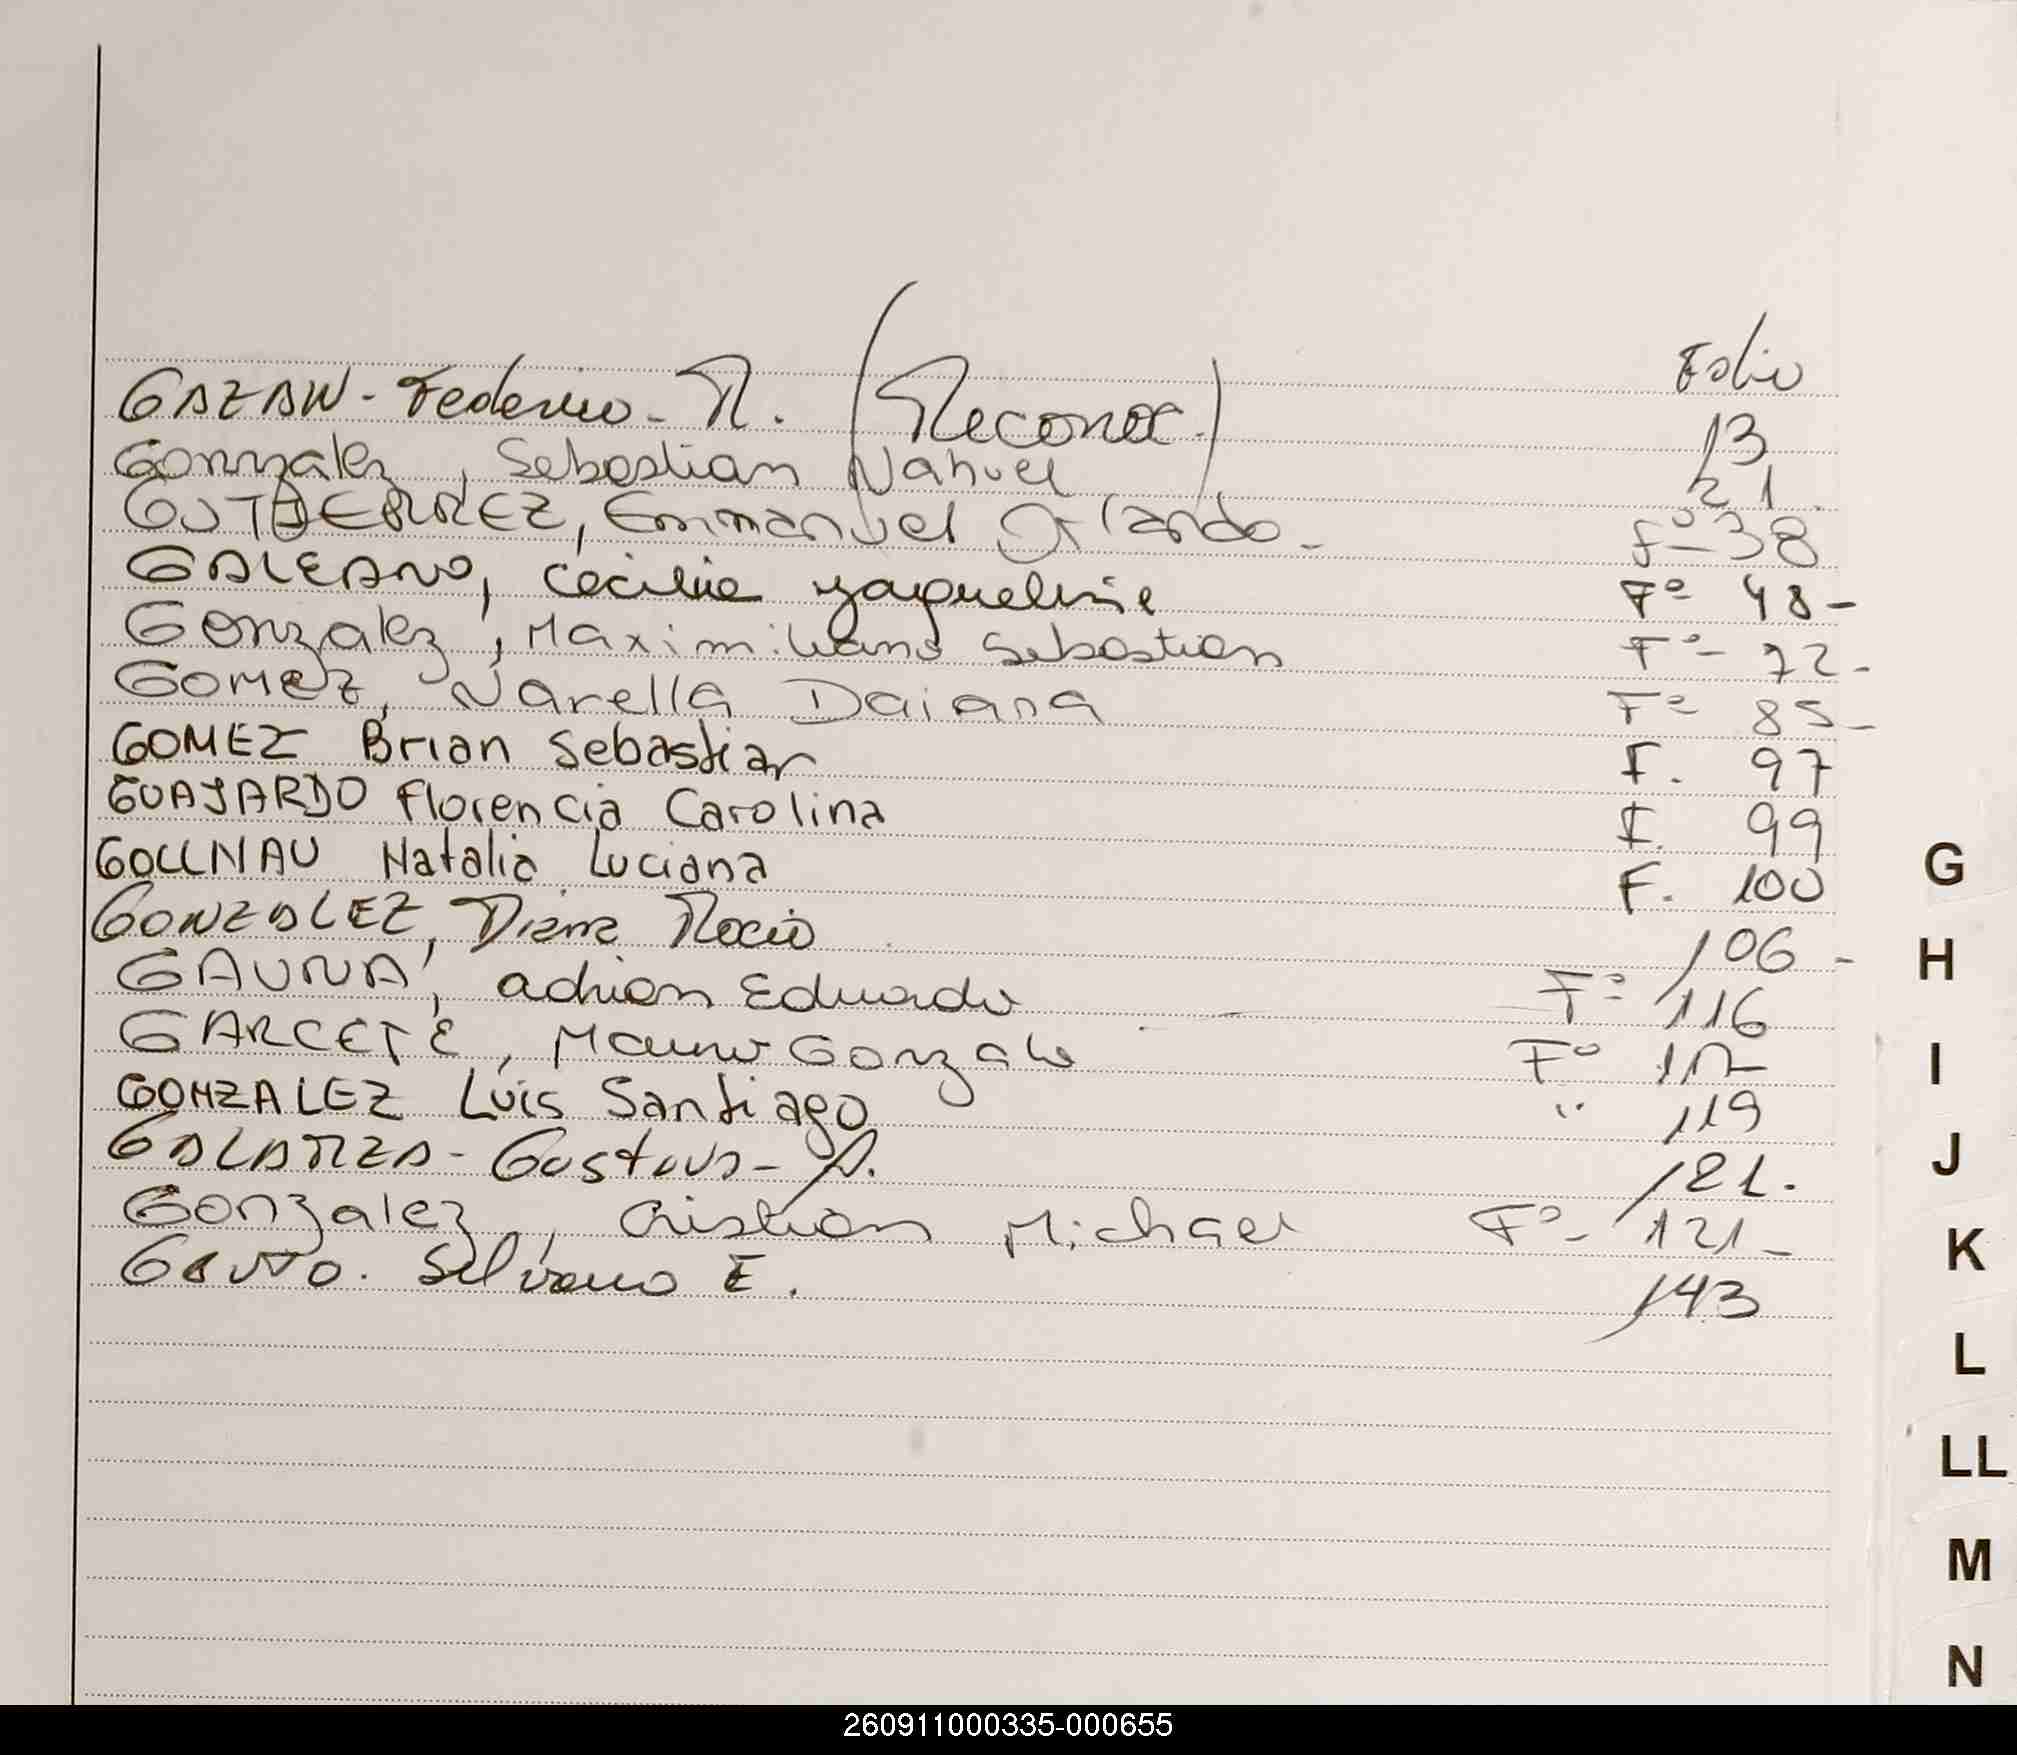 Folio
GAZAN - Federico - R. (Reconoc.) 13
Gonzalez, Sebastian Nahuel 21
GUTIERREZ, Emmanuel Orlando - Fº 38
GALEANO, Cecilia Yaqueline Fº 48 -
Gonzalez, Maximiliano Sebastian Fº 72 -
Gomez, Narella Daiana Fº 85 -
GOMEZ Brian Sebastian F. 97
GUAJARDO Florencia Carolina F. 99
GOLLNAU Natalia Luciana F. 100
GONZALEZ, Diana Rocio 106 -
GAUNA, Adrian Eduardo Fº 116
GARCETE, Mauro Gonzalo Fº 117
GONZALEZ Luis Santiago " 119
GALARZA - Gustavo - A. 121.
Gonzalez, Cristian Michael Fº 121 -
Silvano E. 143
G
H
I
J
K
L
LL
M
N
260911000335-000655